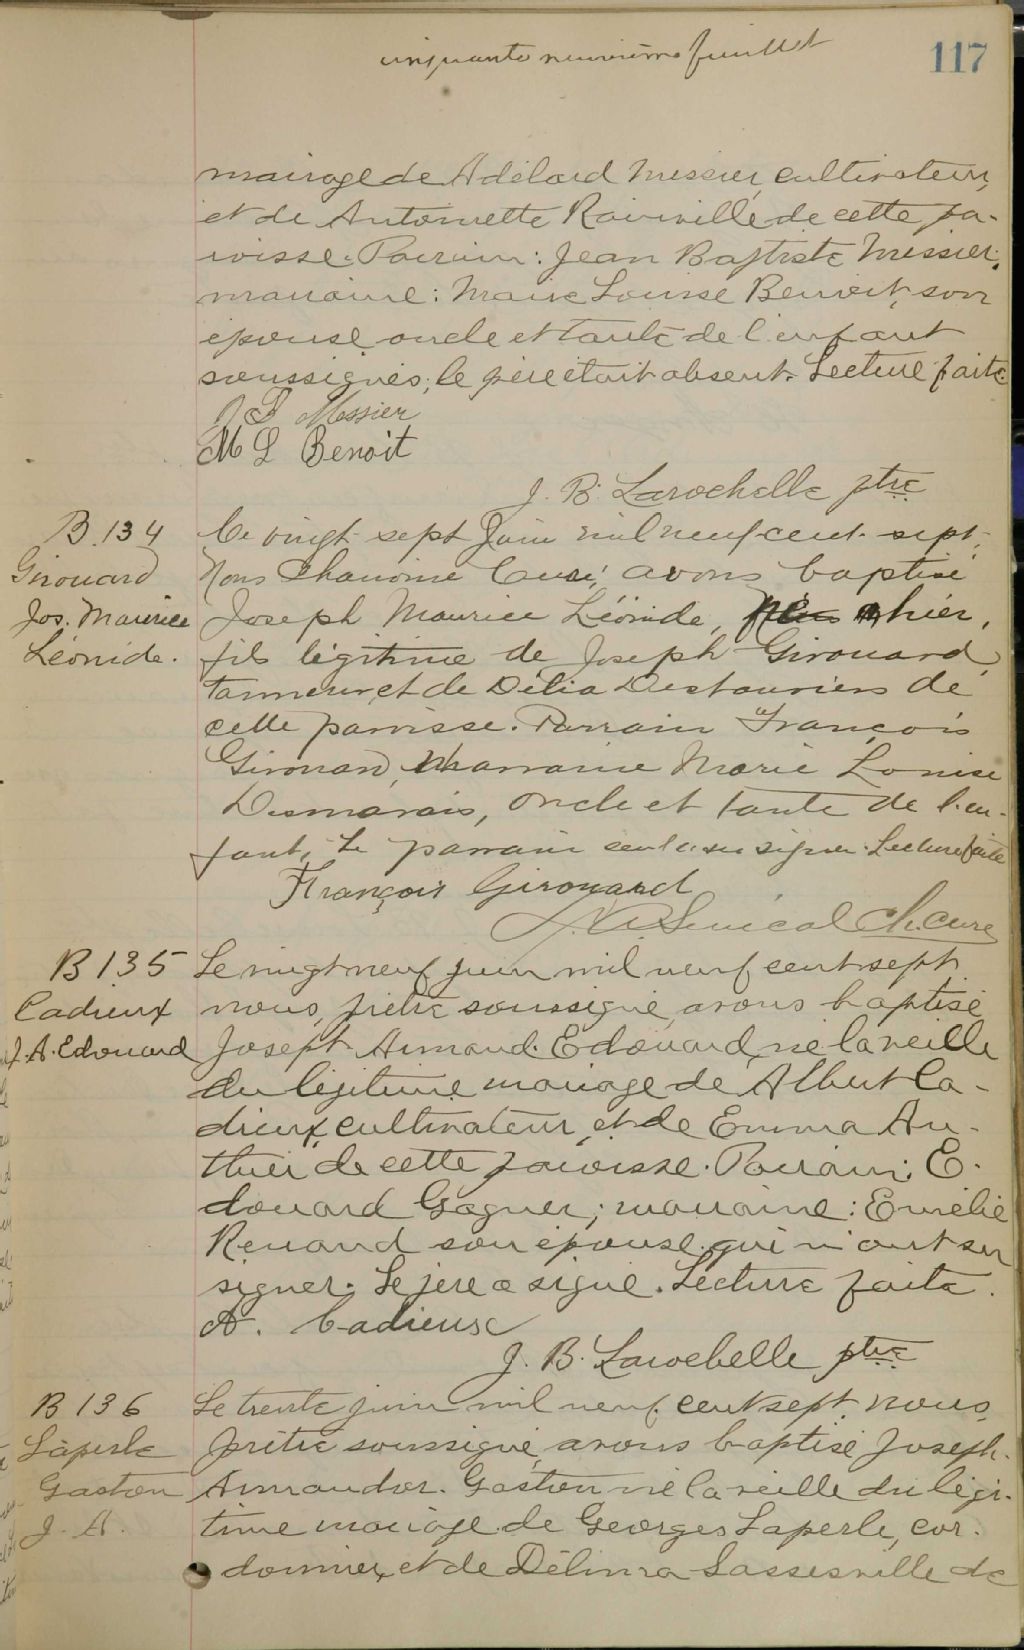 cinquante neuvième feuillet
117
mariage de Adélard Messier, cultivateur,
et de Antoinette Rainville de cette pa-
roisse. Parrain: Jean Baptiste Messier;
marraine: Marie Louise Benoit, son
épouse oncle et tante de l'enfant
soussignés; le père était absent. Lecture faite.
J B Messier
M L Benoit
J. B. Larochelle ptre
B. 134
Girouard
Jos. Maurice
Léonide.
Ce vingt sept Juin mil neuf cent sept,
Nous Chanoine Curé, avons baptisé
Joseph Maurice Léonide, hier,
fils légitime de Joseph Girouard,
tanneur, et de Délia Destauriers de
cette paroisse. Parrain François
Girouard, Marraine Marie Louise
Desmarais, oncle et tante de l'en-
fant, Le parrain seul a su signer. Lecture faite
François Girouard
Senécal Ch. Curé
B 135
Cadieux
J. A. Edouard
Le vingt neuf juin mil neuf cent sept
nous, prêtre soussigné, avons baptisé
Joseph Armand Edouard, né la veille
du légitime mariage de Albert Ca-
dieux, cultivateur, et de Emma Au-
thier de cette paroisse. Parrain: E-
douard Gagner; marraine: Emélie
Renaud son épouse qui n'ont su
signer. Le père a signé. Lecture faite.
A. Cadieux
J. B. Larochelle ptre
B 136
Laperle
Gaston
J. A.
Le trente juin mil neuf cent sept nous,
prêtre soussigné, avons baptisé Joseph-
Armandor. Gaston né la veille du légi-
time mariage de Georges Laperle, cor-
donnier, et de Délima Lassesville de